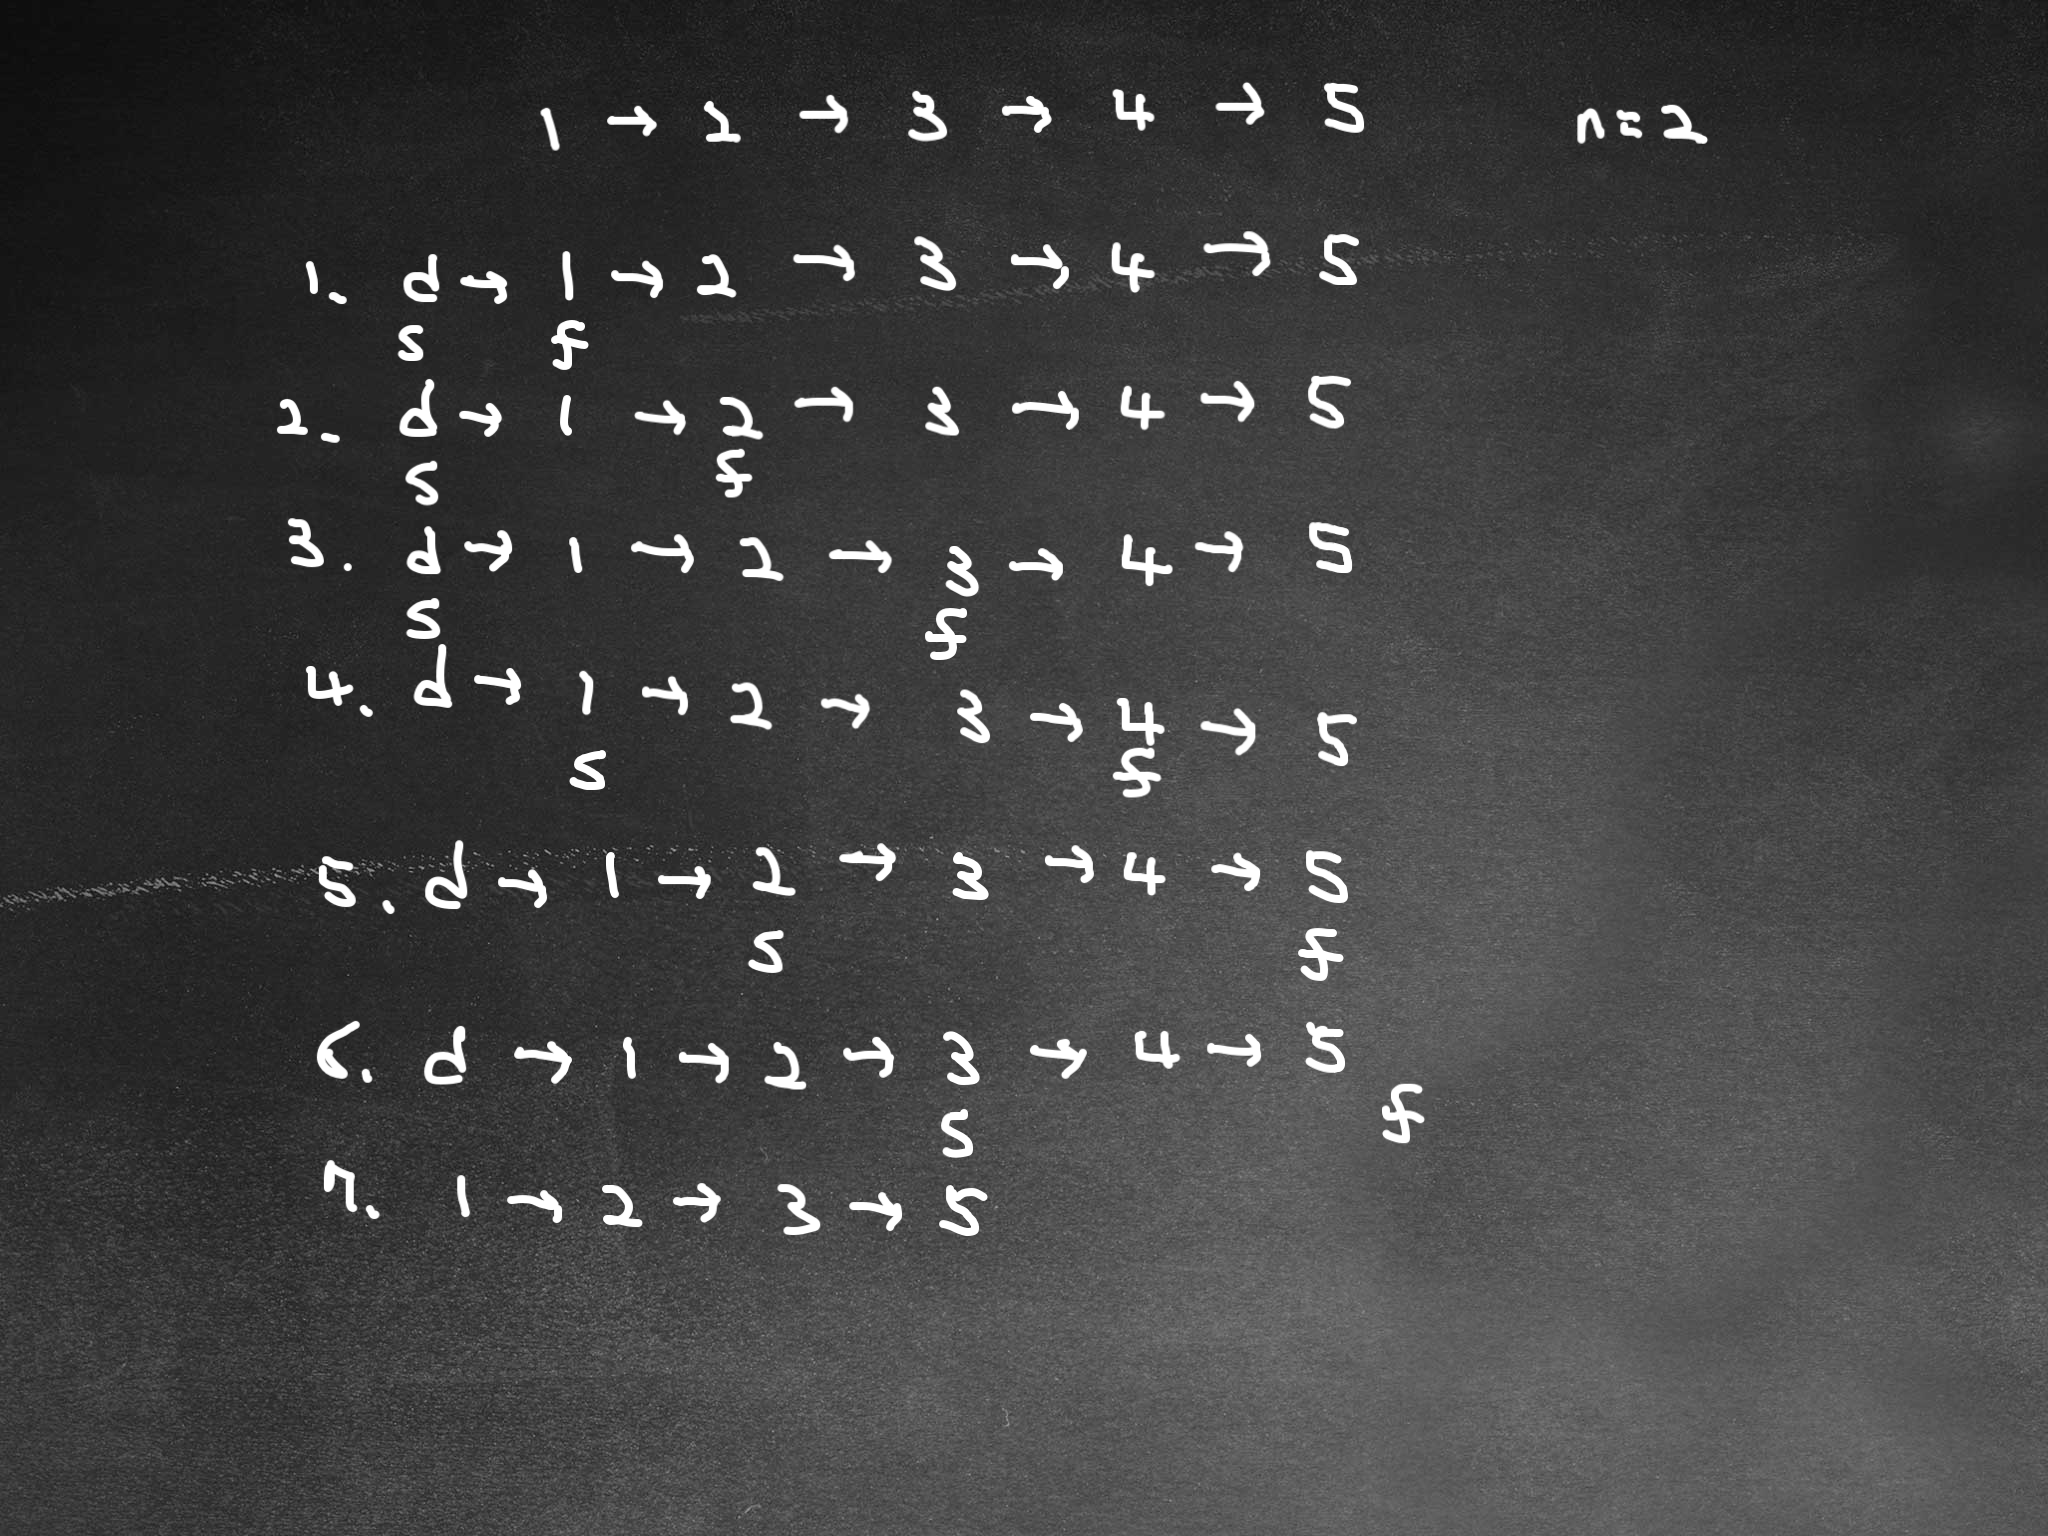 1 → 2 → 3 → 4 → 5 n=2
1. d → 1 → 2 → 3 → 4 → 5
s f
2. d → 1 → 2 → 3 → 4 → 5
s f
3. d → 1 → 2 → 3 → 4 → 5
s f
4. d → 1 → 2 → 3 → 4 → 5
s f
5. d → 1 → 2 → 3 → 4 → 5
s f
6. d → 1 → 2 → 3 → 4 → 5
s f
7. 1 → 2 → 3 → 5